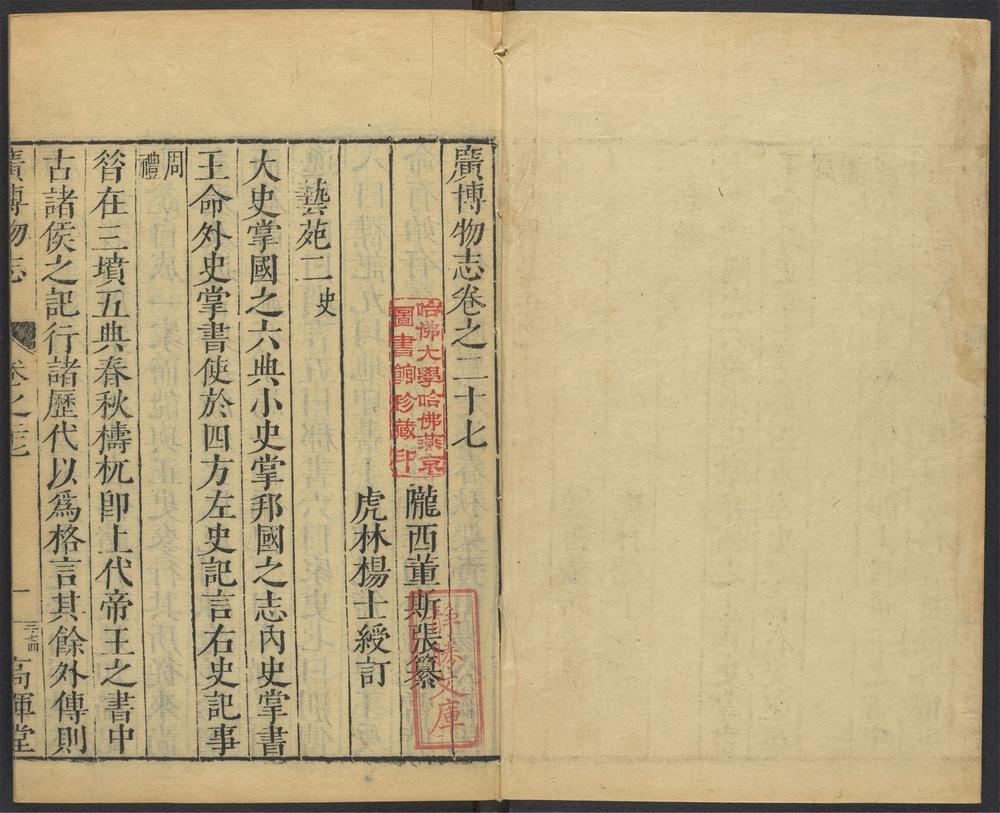 廣博物志卷之二十七
隴西董斯張纂
虎林楊士綬訂
藝苑二史
大史掌國之六典小史掌邦國之志內史掌書
王命外史掌書使於四方左史記言右史記事
周禮
昝在三墳五典春秋檮杌卽上代帝王之書中
古諸侯之記行諸歷代以爲格言其餘外傳則
廣博物志 卷之二十七 一 高暉堂
哈佛大學哈佛燕京
圖書館珍藏印
文庫